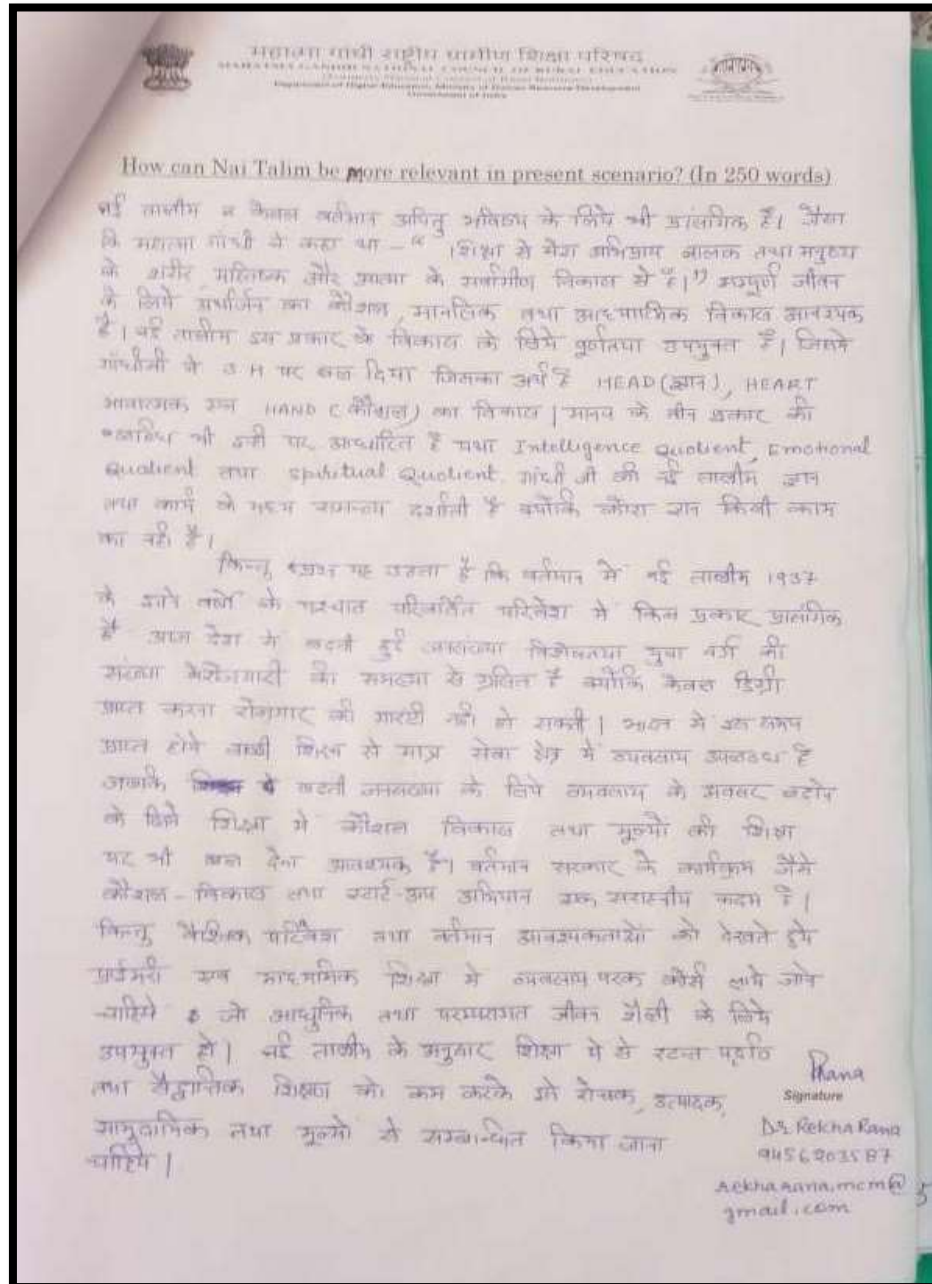 महात्मा गांधी राष्ट्रीय ग्रामीण शिक्षा परिषद
MAHATMA GANDHI NATIONAL COUNCIL OF RURAL EDUCATION
Department of Higher Education, Ministry of Human Resource Development
Government of India
How can Nai Talim be more relevant in present scenario? (In 250 words)
नई तालीम न केवल वर्तमान अपितु भविष्य के लिये भी प्रासंगिक है। जैसा
कि महात्मा गांधी ने कहा था - " शिक्षा से मेरा अभिप्राय बालक तथा मनुष्य
के शरीर, मस्तिष्क और आत्मा के सर्वांगीण विकास से है।" सम्पूर्ण जीवन
के लिये अर्थार्जन का कौशल, मानसिक तथा आध्यात्मिक विकास आवश्यक
है। नई तालीम इस प्रकार के विकास के लिये पूर्णतया उपयुक्त है। जिसमे
गाँधीजी ने 3 H पर बल दिया जिसका अर्थ है HEAD (ज्ञान), HEART
भावात्मक एवं HAND (कौशल) का विकास। मानव के तीन प्रकार की
भी इसी पर आधारित है यथा Intelligence Quotient, Emotional
Quotient तथा Spiritual Quotient. गांधी जी की नई तालीम ज्ञान
तथा कार्य के मध्य समन्वय दर्शाती है क्योंकि कोरा ज्ञान किसी काम
का नहीं है।
किन्तु प्रश्न यह उठता है कि वर्तमान मे नई तालीम 1937
के इतने वर्षो के पश्चात परिवर्तित परिवेश मे किस प्रकार प्रासंगिक
है आज देश मे बढती हुई जनसंख्या विशेषतया युवा वर्ग की
संख्या बेरोजगारी की समस्या से ग्रसित है क्योंकि केवल डिग्री
प्राप्त करना रोजगार की गारंटी नही हो सकती। भारत मे इस समय
प्राप्त होने वाली शिक्षा से मात्र सेवा क्षेत्र मे व्यवसाय उपलब्ध है
जबकि बढती जनसंख्या के लिये व्यवसाय के अवसर
के लिये शिक्षा मे कौशल विकास तथा मूल्यो की शिक्षा
पर भी बल देना आवश्यक है। वर्तमान सरकार के कार्यक्रम जैसे
कौशल - विकास तथा स्टार्ट-अप अभियान एक कदम है।
किन्तु वैश्विक परिवेश तथा वर्तमान आवश्यकताओं को देखते हुये
प्राईमरी एवं माध्यमिक शिक्षा मे व्यवसाय परक कोर्स लाये जाने
चाहिये जो आधुनिक तथा परम्परागत जीवन शैली के लिये
उपयुक्त हो। नई तालीम के अनुसार शिक्षा मे से रटन्त पद्धति
तथा सैद्धान्तिक शिक्षण को कम करके इसे रोचक, उत्पादक,
सामुदायिक तथा मूल्यो से सम्बन्धित किया जाना
चाहिये।
Rana
Signature
Dr. Rekha Rana
9456203587
rekharana.mcm@
gmail.com